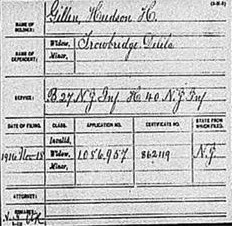 (3-014)
NAME OF SOLDIER: Gillen, Hudson H.
NAME OF DEPENDENT: Widow, Trowbridge, Delila
Minor,
SERVICE: B. 27 N.J. Inf. H. 40 N.J. Inf
DATE OF FILING. CLASS. APPLICATION NO. CERTIFICATE NO. STATE FROM WHICH FILED.
Invalid,
1916 Nov. 15 Widow, 1056957 862119 N.J.
Minor,
ATTORNEY:
REMARKS: